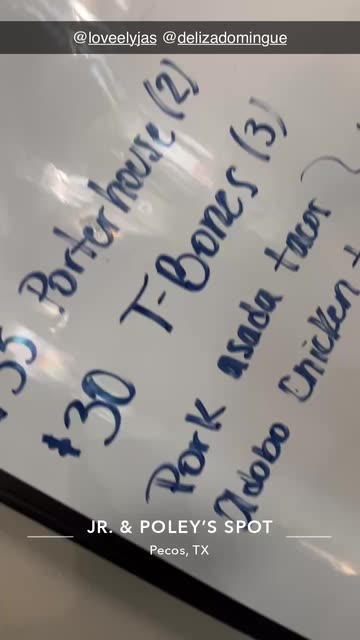 @loveelyjas @delizadomingue
35 Porterhouse (2)
$30 T-Bones (3)
Pork asada tacos
adobo Chicken t
JR. & POLEY'S SPOT
Pecos, TX